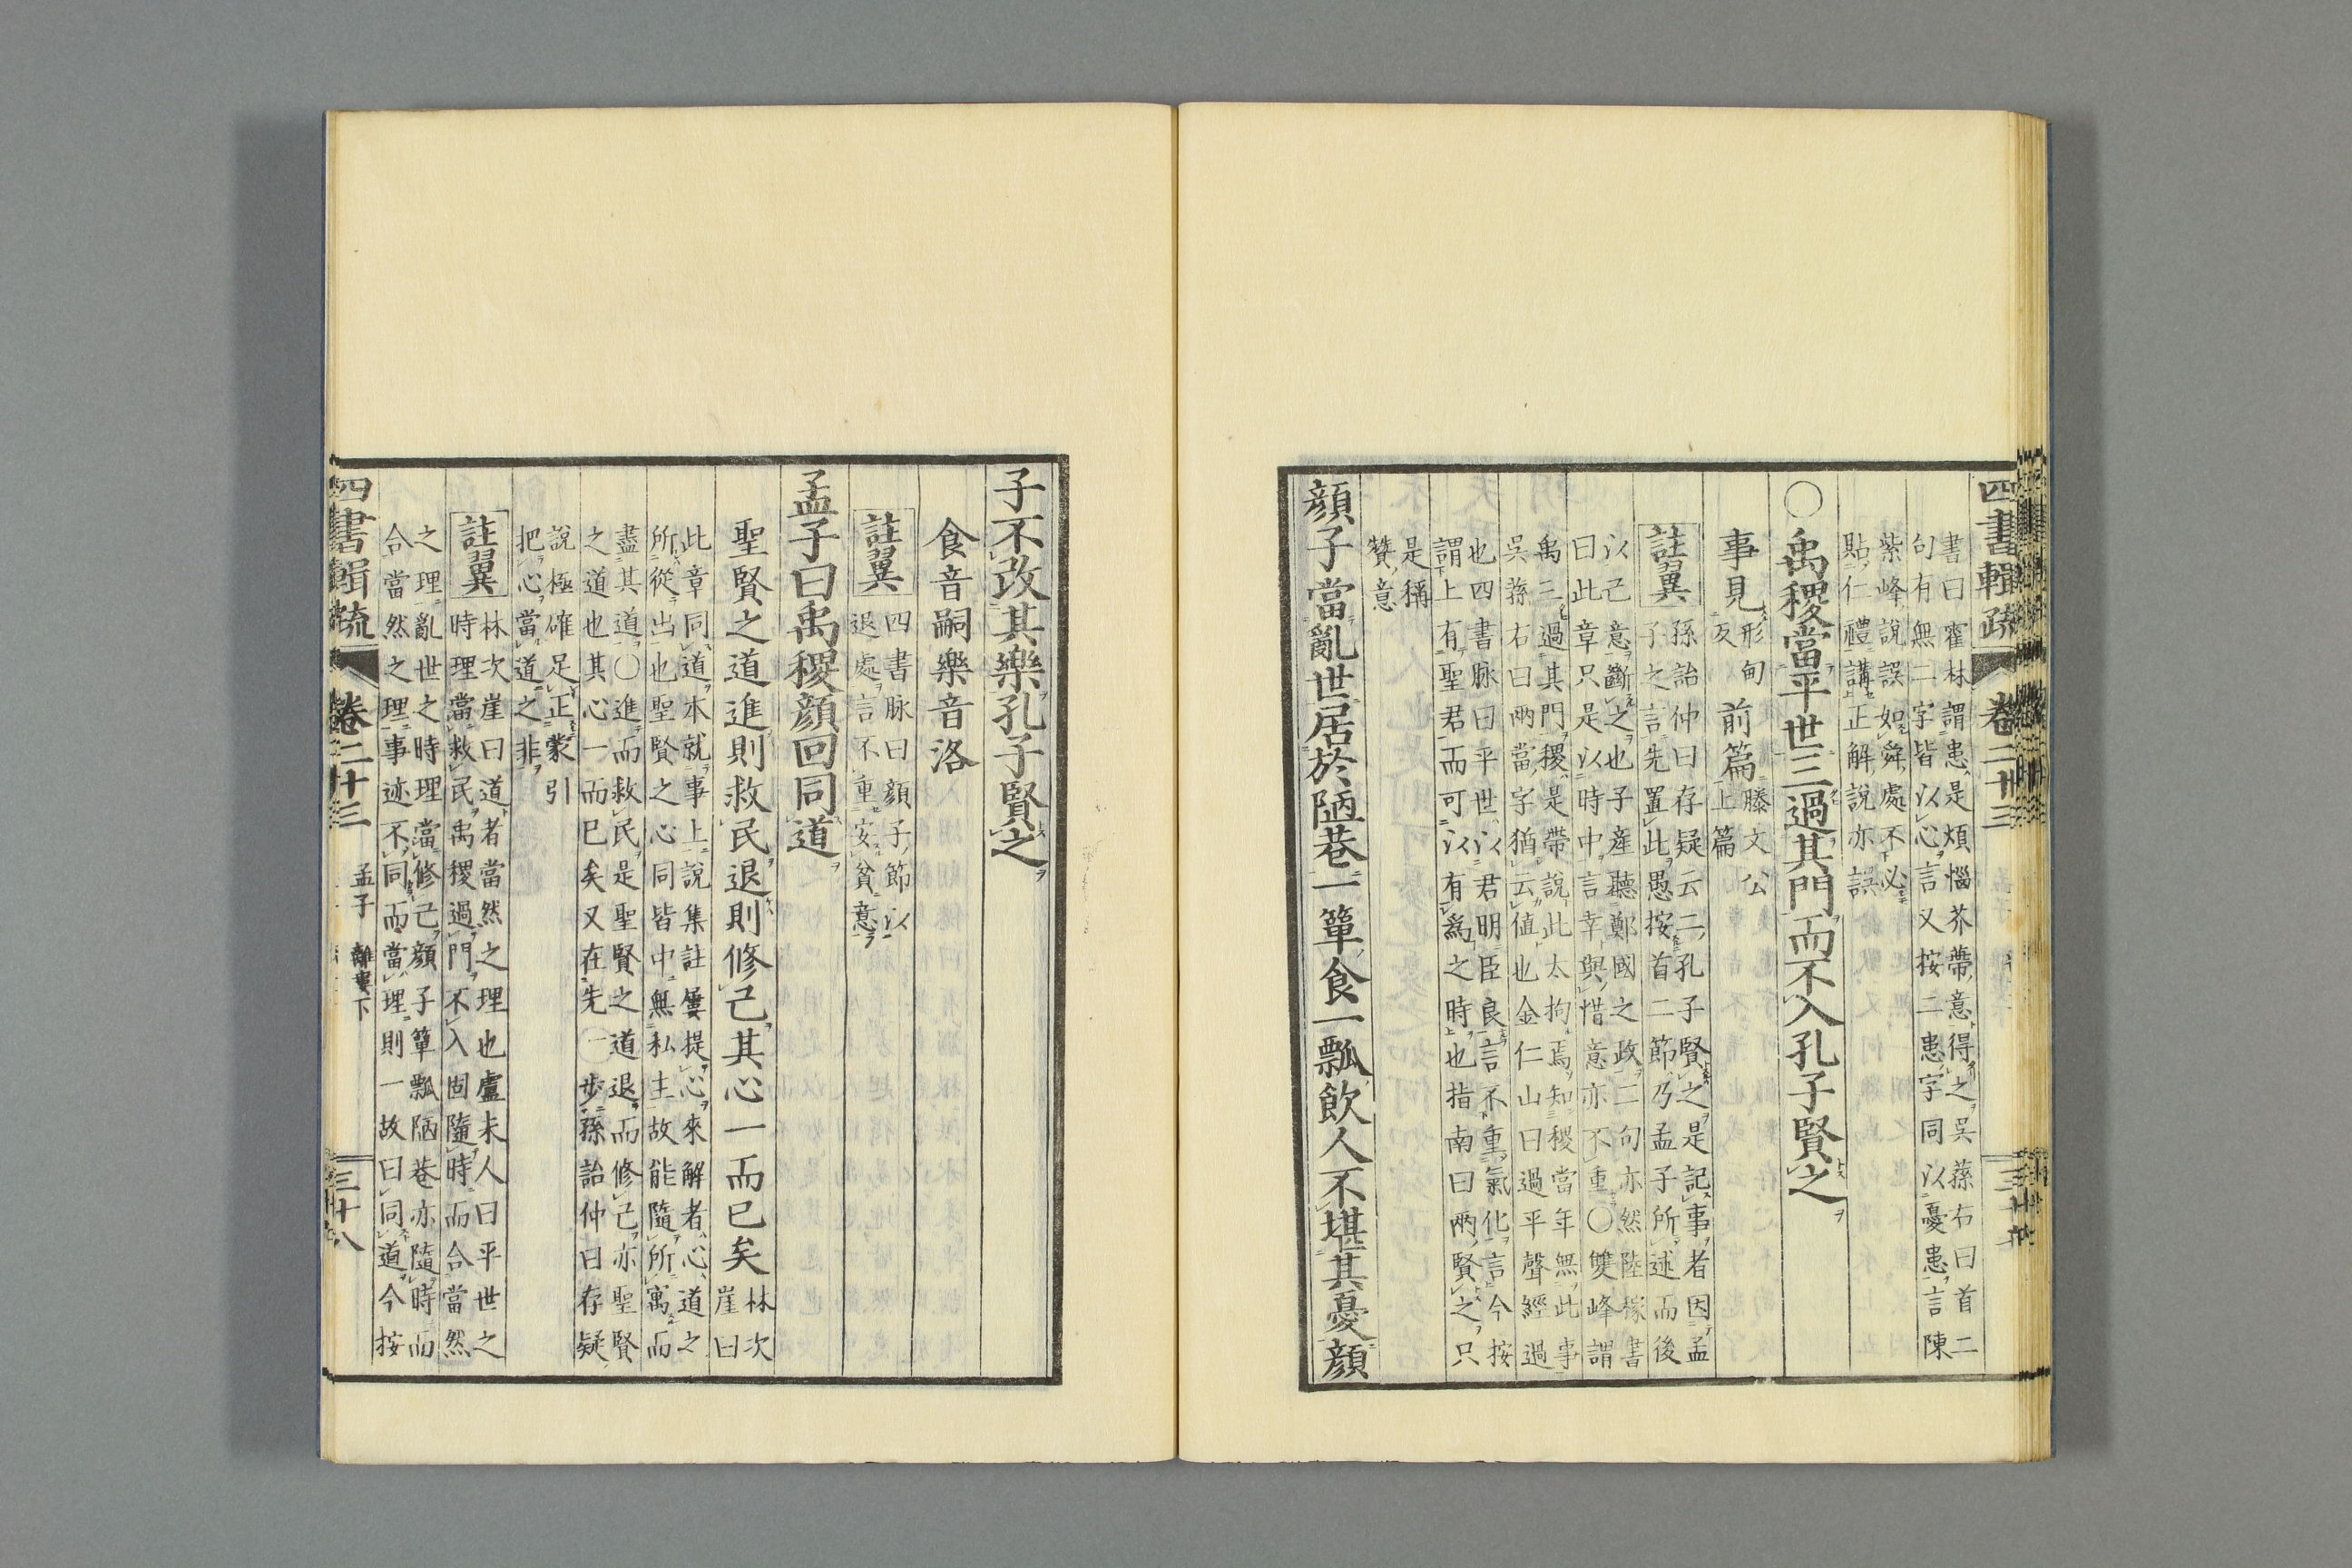 四書輯疏 卷二十三
書曰霍林謂患是煩惱芥蔕意得之吳蓀右曰首二
句有無二字皆以心言又按二患字同以憂患言陳
紫峰說誤如舜處不必
貼仁禮講正解說亦誤
○禹稷當平世三過其門而不入孔子賢之
事見形甸反前篇滕文公上篇
註翼 孫詒仲曰存疑云二孔子賢之是記事者因孟
子之言先置此愚按首二節乃孟子所述而後
以己意斷之也子産聽鄭國之政二句亦然陸稼書
曰此章只是以時中言幸與惜意亦不重○雙峰謂
禹三過其門稷是帶說此太拘焉知稷當年無此事
吳蓀右曰兩當字猶云值也金仁山曰過平聲經過
也四書脉曰平世以君明臣良言不重氣化言今按
謂上有聖君而可以有爲之時也指南曰兩賢之只
是稱
贊意
顏子當亂世居於陋巷一簞食一瓢飲人不堪其憂顏
子不改其樂孔子賢之
食音嗣樂音洛
註翼 四書脉曰顏子節以
退處言不重安貧意
孟子曰禹稷顏回同道
聖賢之道進則救民退則修己其心一而已矣 林次
崖曰
此章同道本就事上說集註屢提心來解者心道之
所從出也聖賢之心同皆中無私主故能隨所寓而
盡其道○進而救民是聖賢之道退而修己亦聖賢
之道也其心一而已矣又在先一步孫詒仲曰存疑
說極確足正蒙引
把心當道之非
註翼 林次崖曰道者當然之理也盧未人曰平世之
時理當救民禹稷過門不入固隨時而合當然
之理亂世之時理當修己顏子簞瓢陋巷亦隨時而
合當然之理事迹不同而當理則一故曰同道今按
四書輯疏 卷二十三 孟子 離婁下 三十八